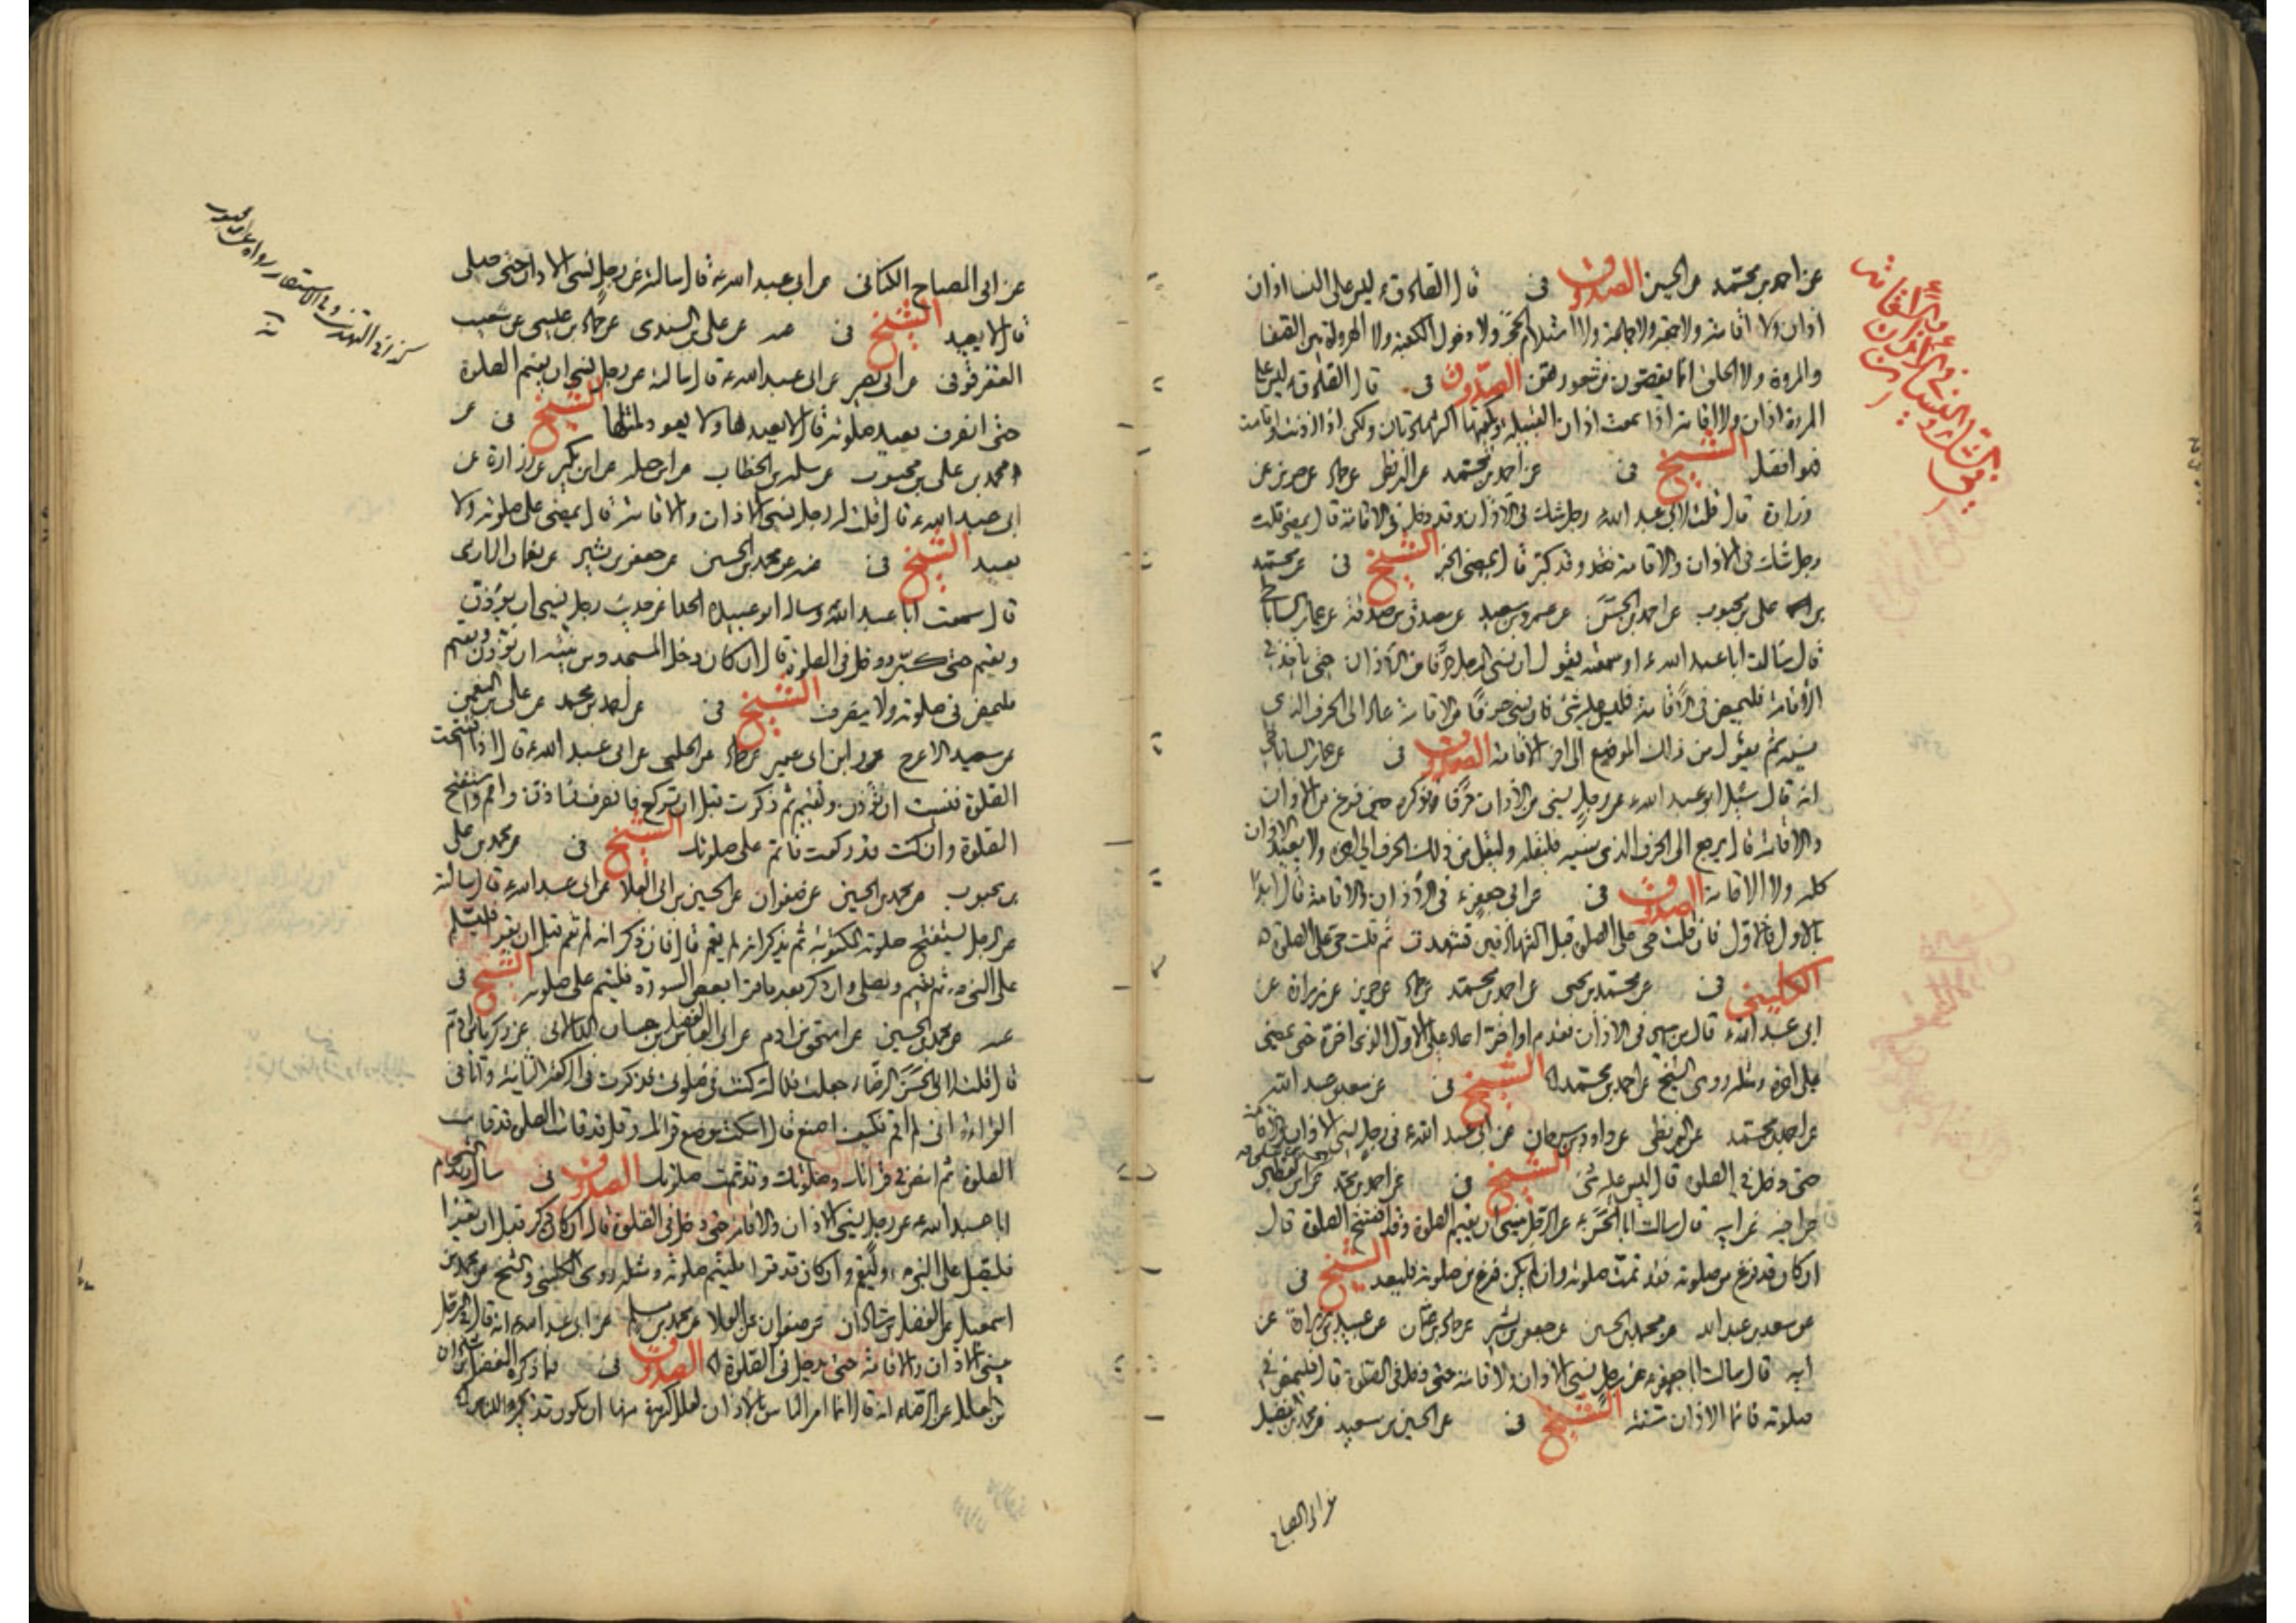 عن احمد بن محمد عن الحسين الصدوق في قال الصادق ع ليس على النساء اذان
اذان ولا اقامة ولا جمعة ولا جماعة ولا استلام الحجر ولا دخول الكعبة ولا الهرولة بين الصفا
والمروة ولا الحلق انما يقصرن من شعورهن الصدوق في قال الصادق ع ليس على
المرءة اذان ولا اقامة اذا سمعت اذان القبيلة وتكفيها الشهادتان ولكن اذا اذنت واقامت
فهو افضل الشيخ في عن احمد بن محمد عن البزنطي عن حماد عن حريز عن
زرارة قال قلت لابي عبد الله ع رجل شك في الاذان وقد دخل في الاقامة قال يمضي قلت
رجل شك في الاذان والاقامة وقد كبر قال يمضي الخبر الشيخ في عن محمد
بن علي بن محبوب عن احمد بن الحسن عن عمرو بن سعيد عن مصدق بن صدقة عن عمار الساباطي
قال سالت ابا عبد الله ع او سمعته يقول ان نسي الرجل حرفا من الاذان حتى ياخذ في
الاقامة فليمض في الاقامة فليس عليه شئ فان نسي حرفا من الاقامة عاد الى الحرف الذي
نسيه ثم يقول من ذلك الموضع الى اخر الاقامة الصدوق في عن عمار الساباطي
انه قال سئل ابو عبد الله ع عن رجل نسي من الاذان حرفا فذكره حين فرغ من الاذان
والاقامة قال يرجع الى الحرف الذي نسيه فليقله وليقل من ذلك الحرف الى اخره ولا يعيد الاذان
كله ولا الاقامة الصدوق في عن ابي جعفر ع في الاذان والاقامة قال ابدا
بالاول فالاول فان قلت حي على الصلوة قبل الشهادتين تشهدت ثم قلت حي على الصلوة
الكليني في عن محمد بن يحيى عن احمد بن محمد عن حماد عن حريز عن زرارة عن
ابي عبد الله ع قال من سهى في الاذان فقدم او اخر اعاد على الاول الذي اخره حتى يمضي
على اخره ومثله روى الشيخ عن احمد بن محمد الشيخ في عن سعد بن عبد الله
عن احمد بن محمد عن البزنطي عن داود بن سرحان عن ابي عبد الله ع في رجل نسي الاذان والاقامة
حتى دخل في الصلوة قال ليس عليه شئ الشيخ في عن احمد بن محمد عن
عن ابيه قال سالت ابا الحسن ع عن الرجل ينسى ان يقيم الصلوة وقد افتتح الصلوة قال
ان كان قد فرغ من صلوته فقد تمت صلوته وان لم يكن فرغ من صلوته فليعد الشيخ في
عن سعد بن عبد الله عن محمد بن الحسين عن جعفر بن بشير عن حماد بن عثمان عن عبيد بن زرارة عن
ابيه قال سالت ابا جعفر ع عن رجل نسي الاذان والاقامة حتى دخل في الصلوة قال فليمض في
صلوته فانما الاذان سنة الشيخ في عن الحسين بن سعيد عن محمد بن فضيل
عن ابي الصباح
عن ابي الصباح الكناني عن ابي عبد الله ع قال سالته عن رجل نسي الاذان حتى صلى
قال لا يعيد الشيخ في عنه عن علي بن السندي عن حماد بن عيسى عن شعيب
العقرقوفي عن ابي بصير عن ابي عبد الله ع قال سالته عن رجل نسي ان يقيم الصلوة
حتى انصرف يعيد صلوته قال لا يعيدها ولا يعود لمثلها الشيخ في عن
محمد بن علي بن محبوب عن سلمة بن الخطاب عن ابي جميلة عن ابن بكير عن زرارة عن
ابي عبد الله ع قال قلت له رجل نسي الاذان والاقامة قال يمضي على صلوته ولا
يعيد الشيخ في عنه عن محمد بن الحسين عن جعفر بن بشير عن نعمان الرازي
قال سمعت ابا عبد الله ع وساله ابو عبيدة الحذاء عن حديث رجل نسي ان يؤذن
ويقيم حتى كبر ودخل في الصلوة قال ان كان دخل المسجد ومن نيته ان يؤذن ويقيم
فليمض في صلوته ولا ينصرف الشيخ في عن احمد بن محمد عن علي بن النعمان
عن سعيد الاعرج وابن ابي عمير عن حماد عن الحلبي عن ابي عبد الله ع قال اذا افتتحت
الصلوة فنسيت ان تؤذن وتقيم ثم ذكرت قبل ان تركع فانصرف فاذن واقم واستفتح
الصلوة وان كنت قد ركعت فاتم على صلوتك الشيخ في عن محمد بن علي
بن محبوب عن محمد بن الحسين عن صفوان عن الحسين بن ابي العلا عن ابي عبد الله ع قال سالته
عن الرجل يستفتح صلوته المكتوبة ثم يذكر انه لم يقم قال فان ذكر انه لم يقم قبل ان يقرا فليسلم
على النبي ص ثم يقيم ويصلي وان ذكر بعد ما قرا بعض السورة فليتم على صلوته الشيخ في
عنه عن محمد بن الحسين عن اسحق بن ادم عن ابي العباس الفضل بن حسان الدالاني عن زكريا بن ادم
قال قلت لابي الحسن الرضا ع جعلت فداك كنت في صلوتي فذكرت في الركعة الثانية وانا في
القراءة اني لم اقم فكيف اصنع قال اسكت موضع قراءتك وقل قد قامت الصلوة قد قامت
الصلوة ثم امض في قراءتك وصلوتك وقد تمت صلوتك الصدوق في سال
ابا عبد الله ع عن رجل ينسى الاذان والاقامة حتى دخل في الصلوة قال ان كان ذكر قبل ان يقرا
فليصل على النبي ص وليقم وان كان قد قرا فليتم صلوته ومثله روى الكليني والشيخ عن محمد بن
اسمعيل عن الفضل بن شاذان عن صفوان عن العلا عن محمد بن مسلم عن ابي عبد الله ع انه قال في الرجل
ينسى الاذان والاقامة حتى يدخل في الصلوة الصدوق في فيما ذكره الفضل بن شاذان
من العلل عن الرضا ع انه قال انما امر الناس بالاذان لعلل كثيرة منها ان يكون تذكيرا للناس